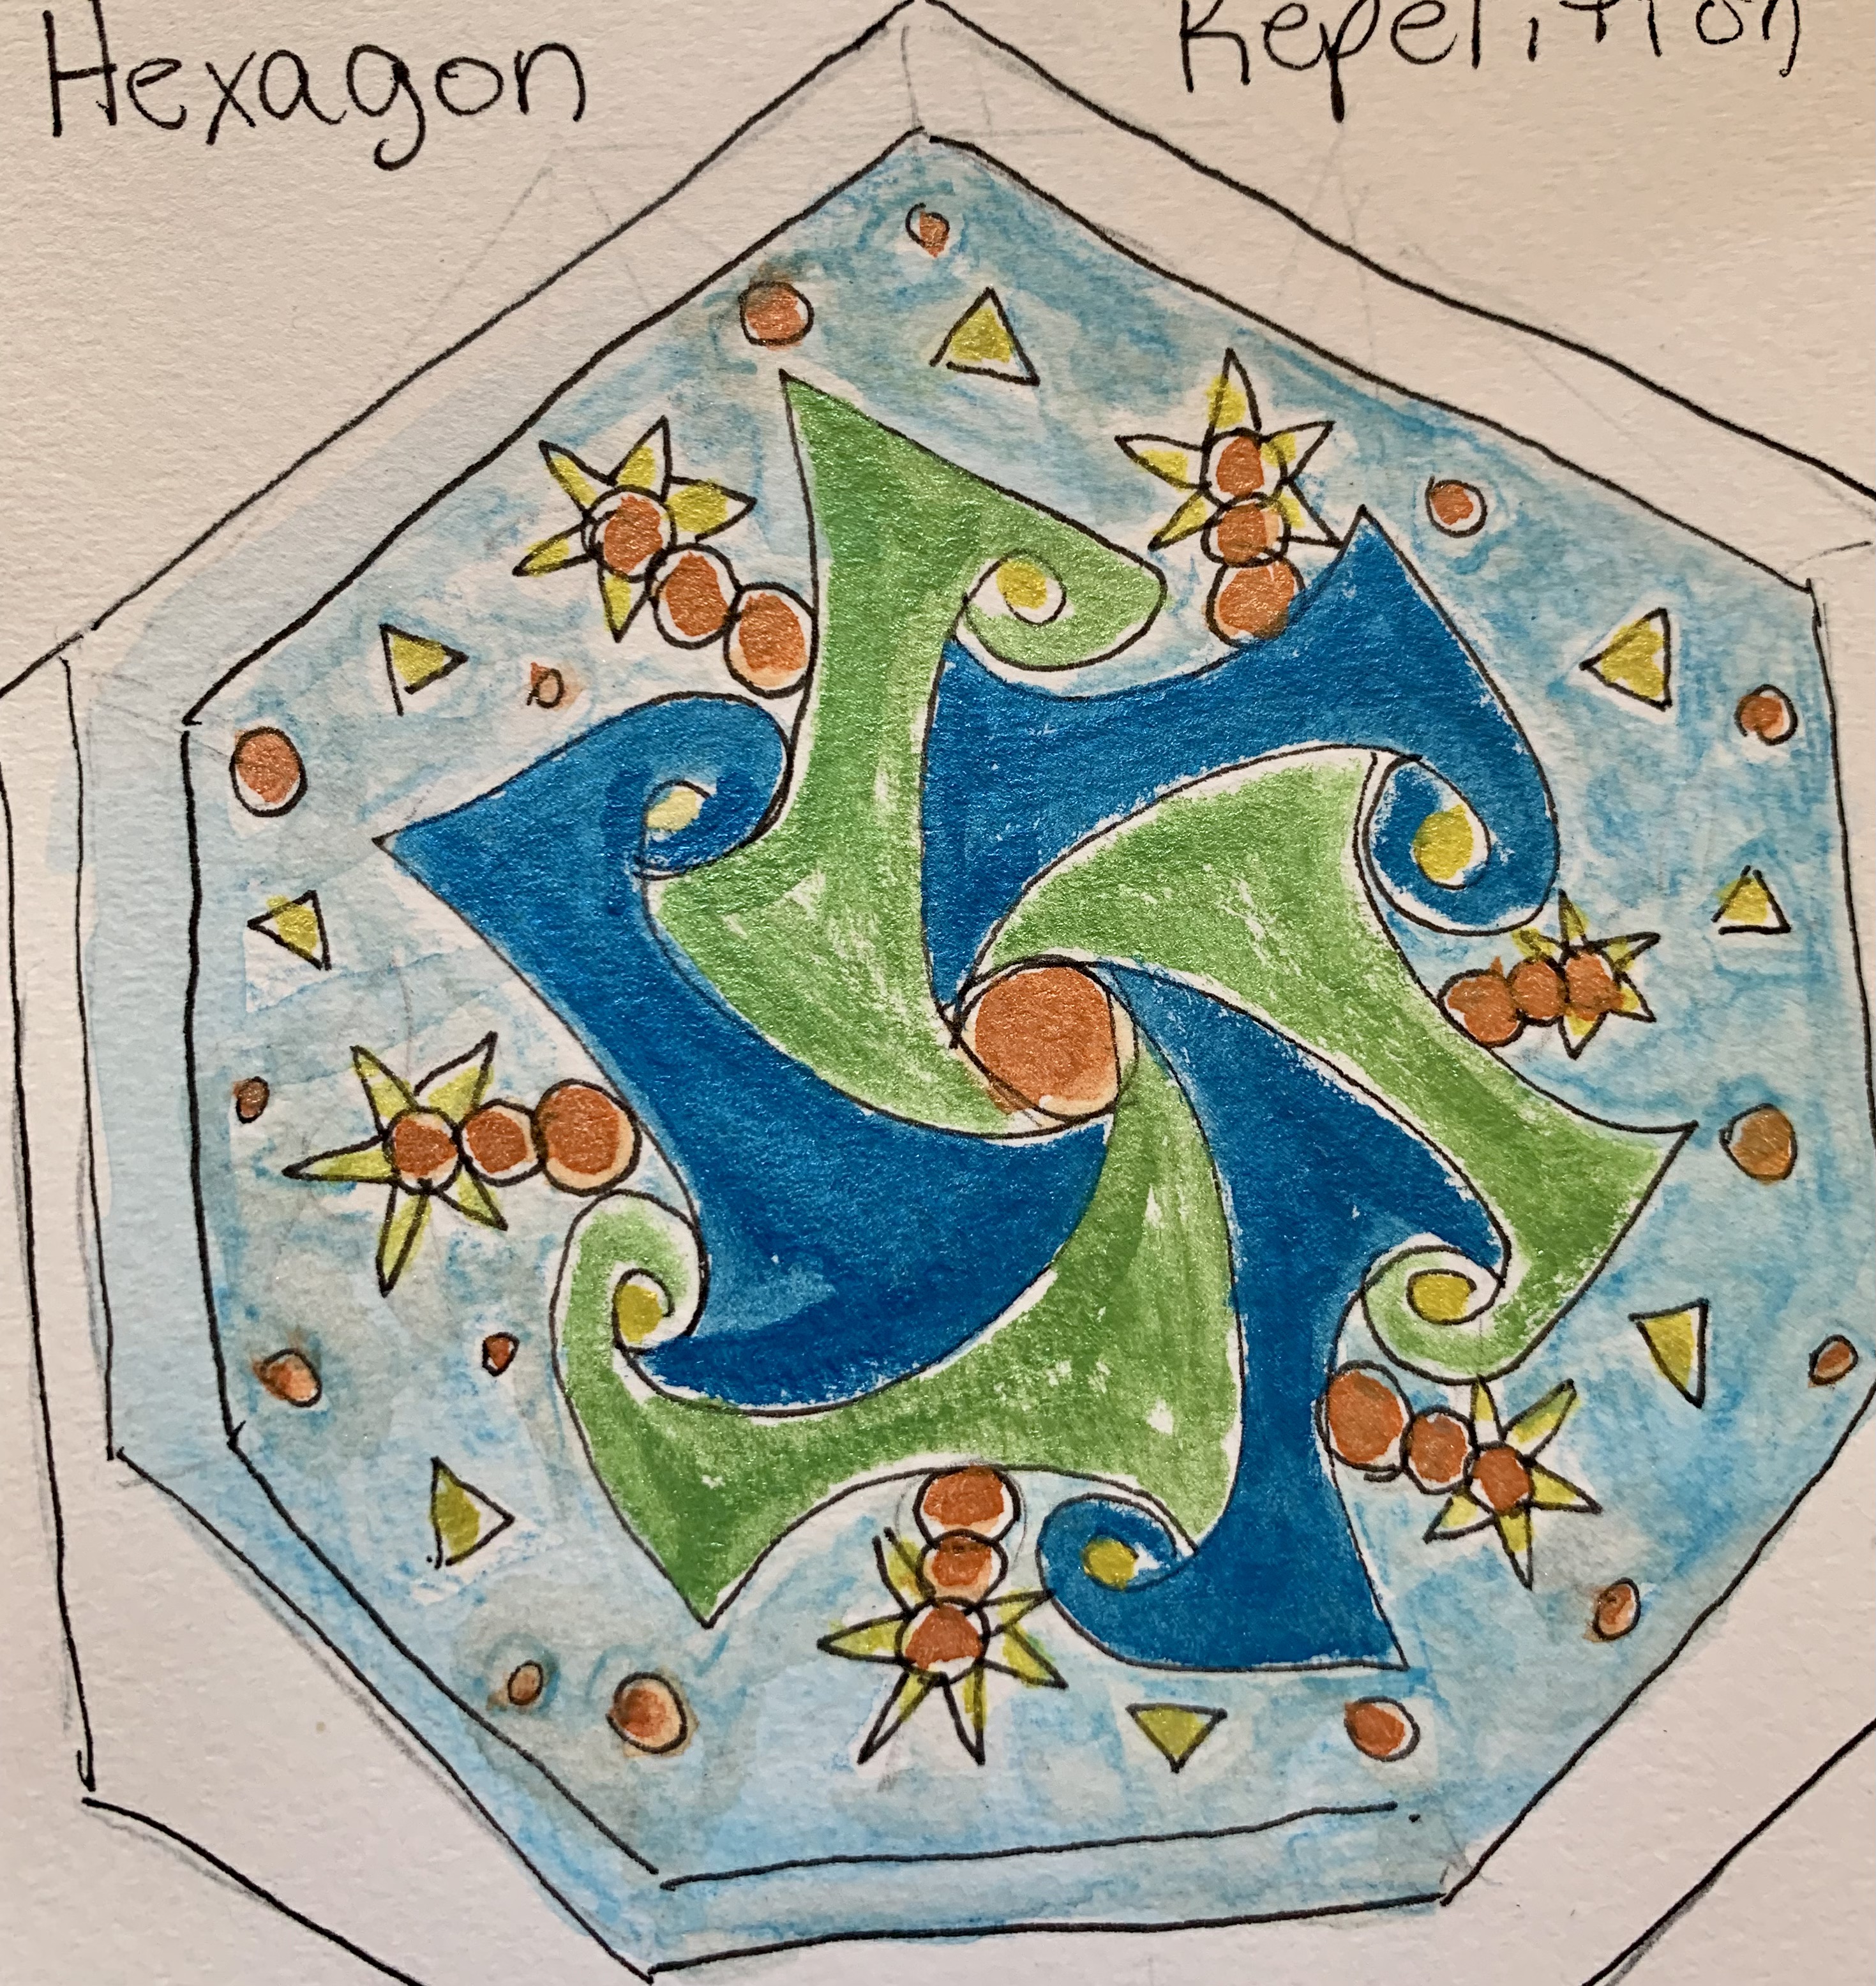 Hexagon Repetition